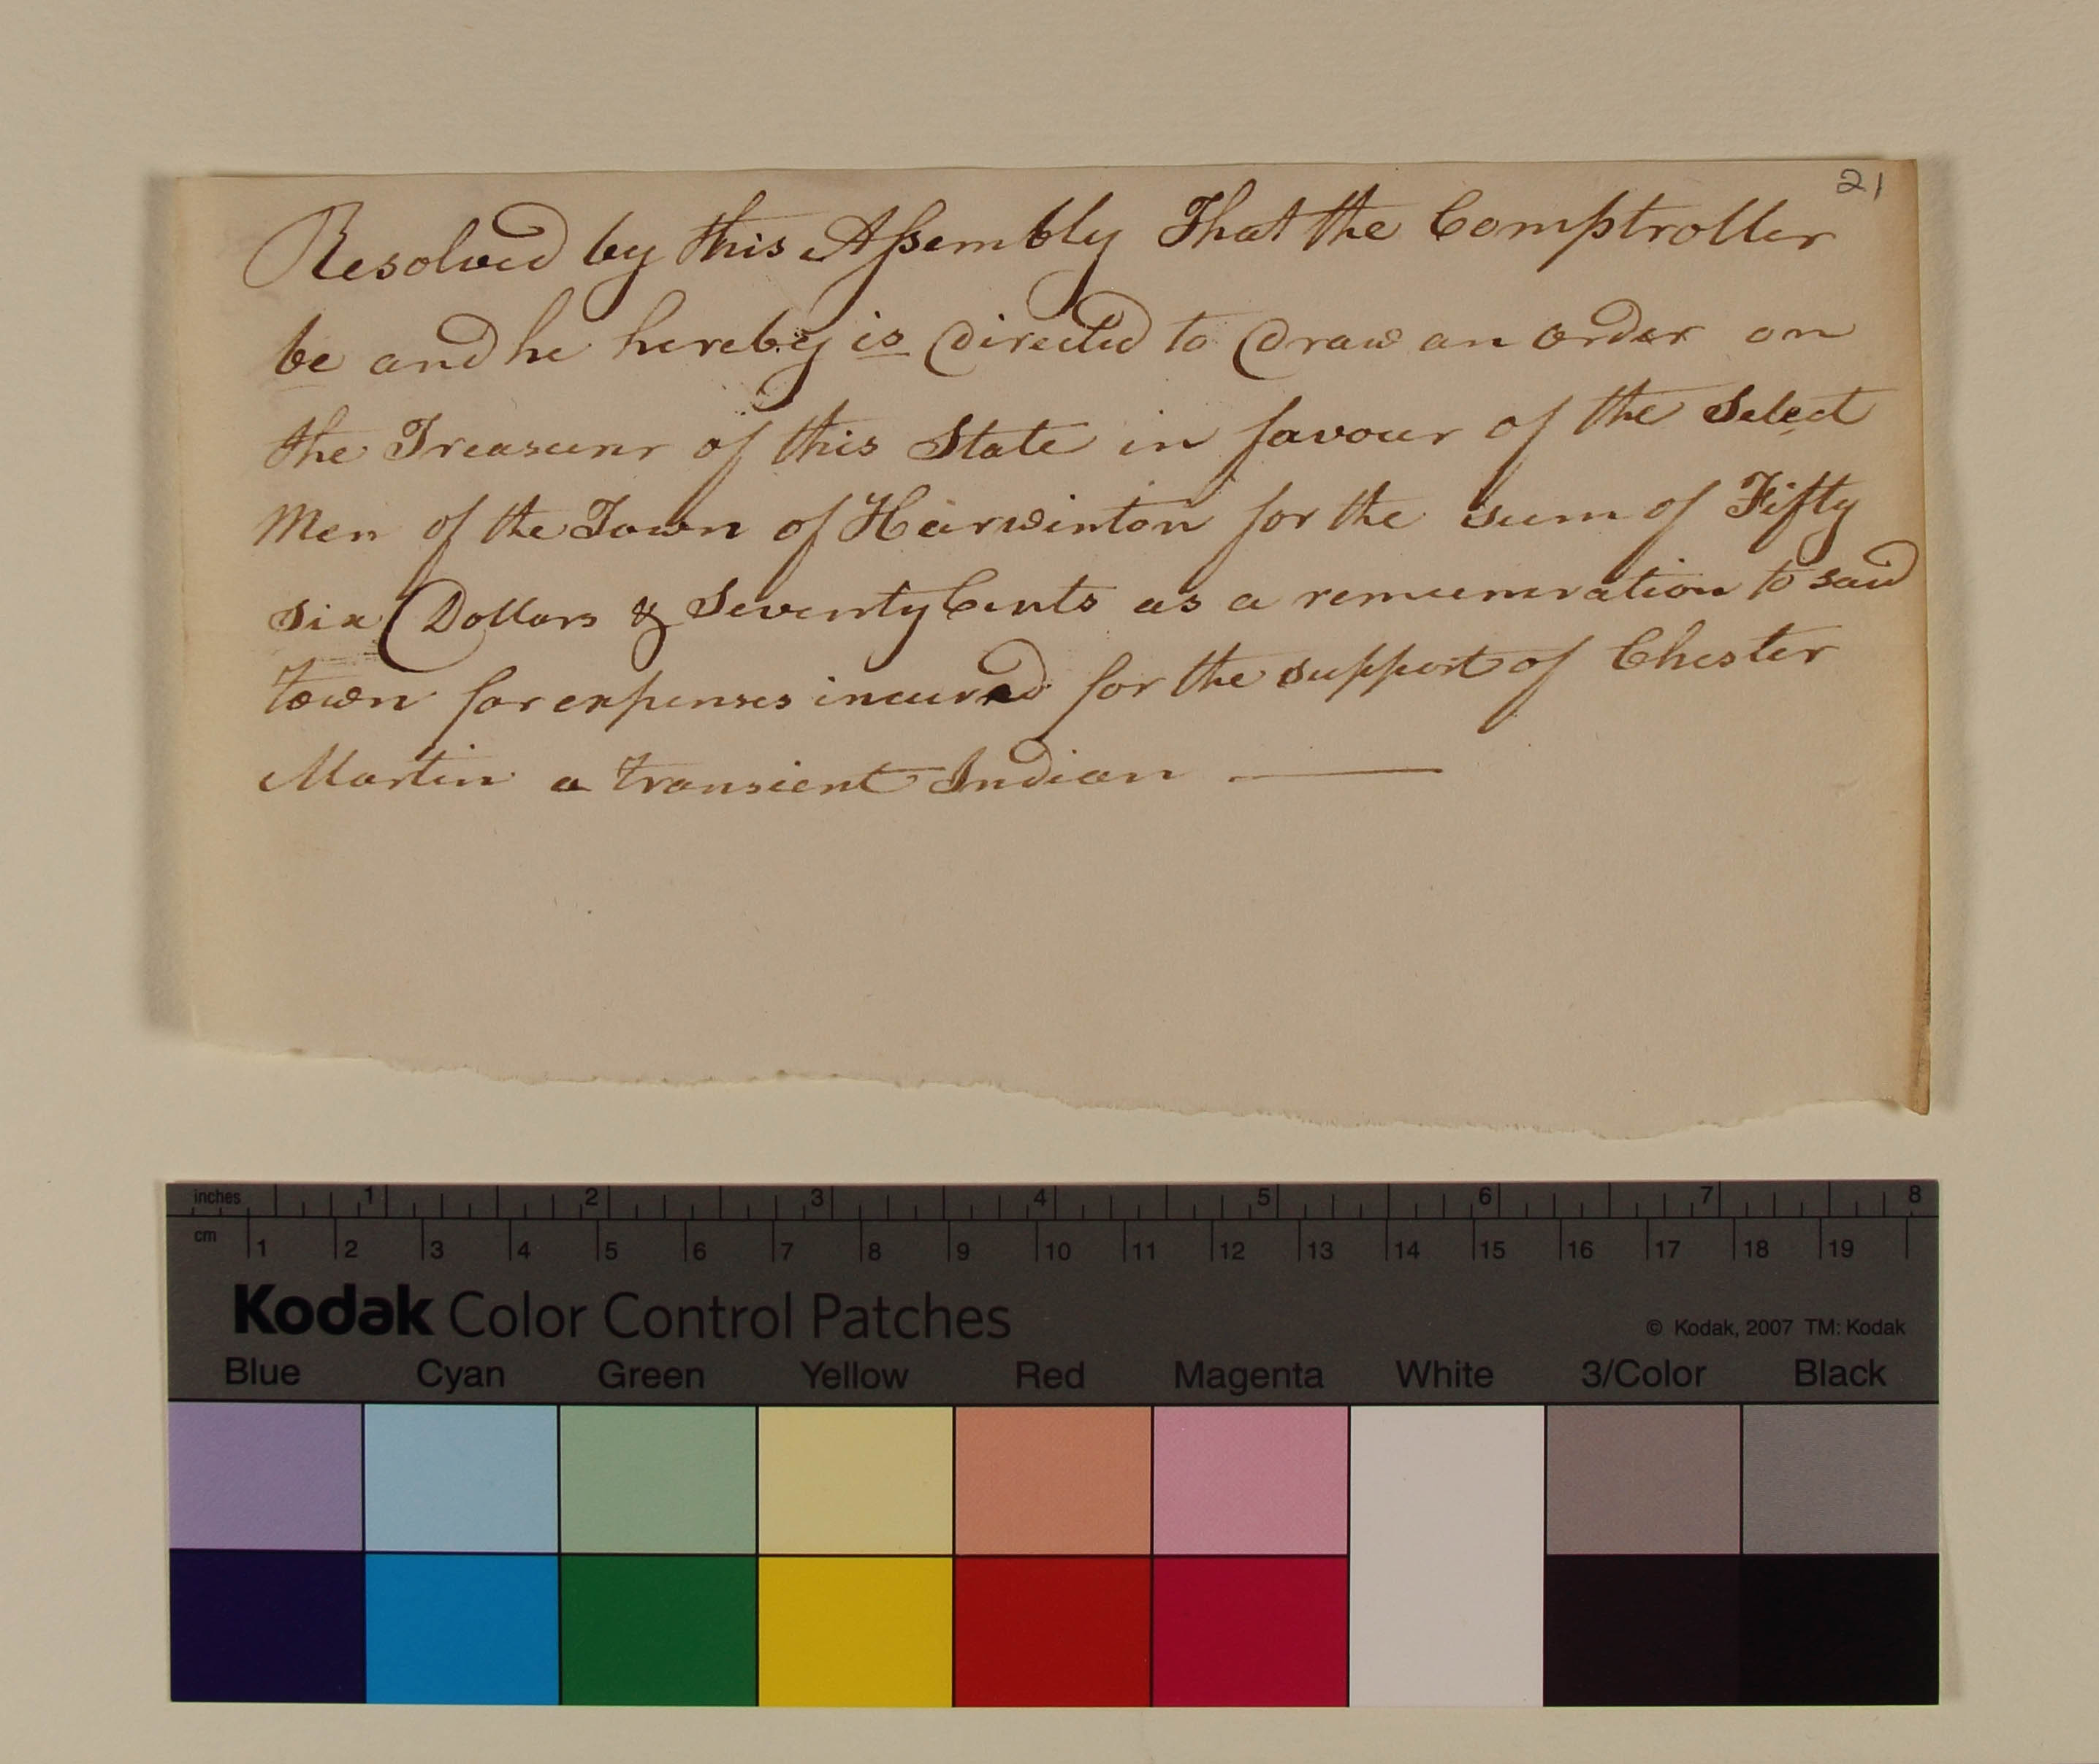 21
Resolved by this Assembly That the Comptroller
be and he hereby is Directed to Draw an order on
the Treasurer of this State in favour of the Select
Men of the Town of Harwinton for the sum of Fifty
Six Dollars & Seventy Cents as a remuneration to said
town for expenses incured for the support of Chester
Martin a transient Indian
inches 1 2 3 4 5 6 7 8
cm 1 2 3 4 5 6 7 8 9 10 11 12 13 14 15 16 17 18 19
Kodak Color Control Patches
© Kodak, 2007 TM: Kodak
Blue Cyan Green Yellow Red Magenta White 3/Color Black